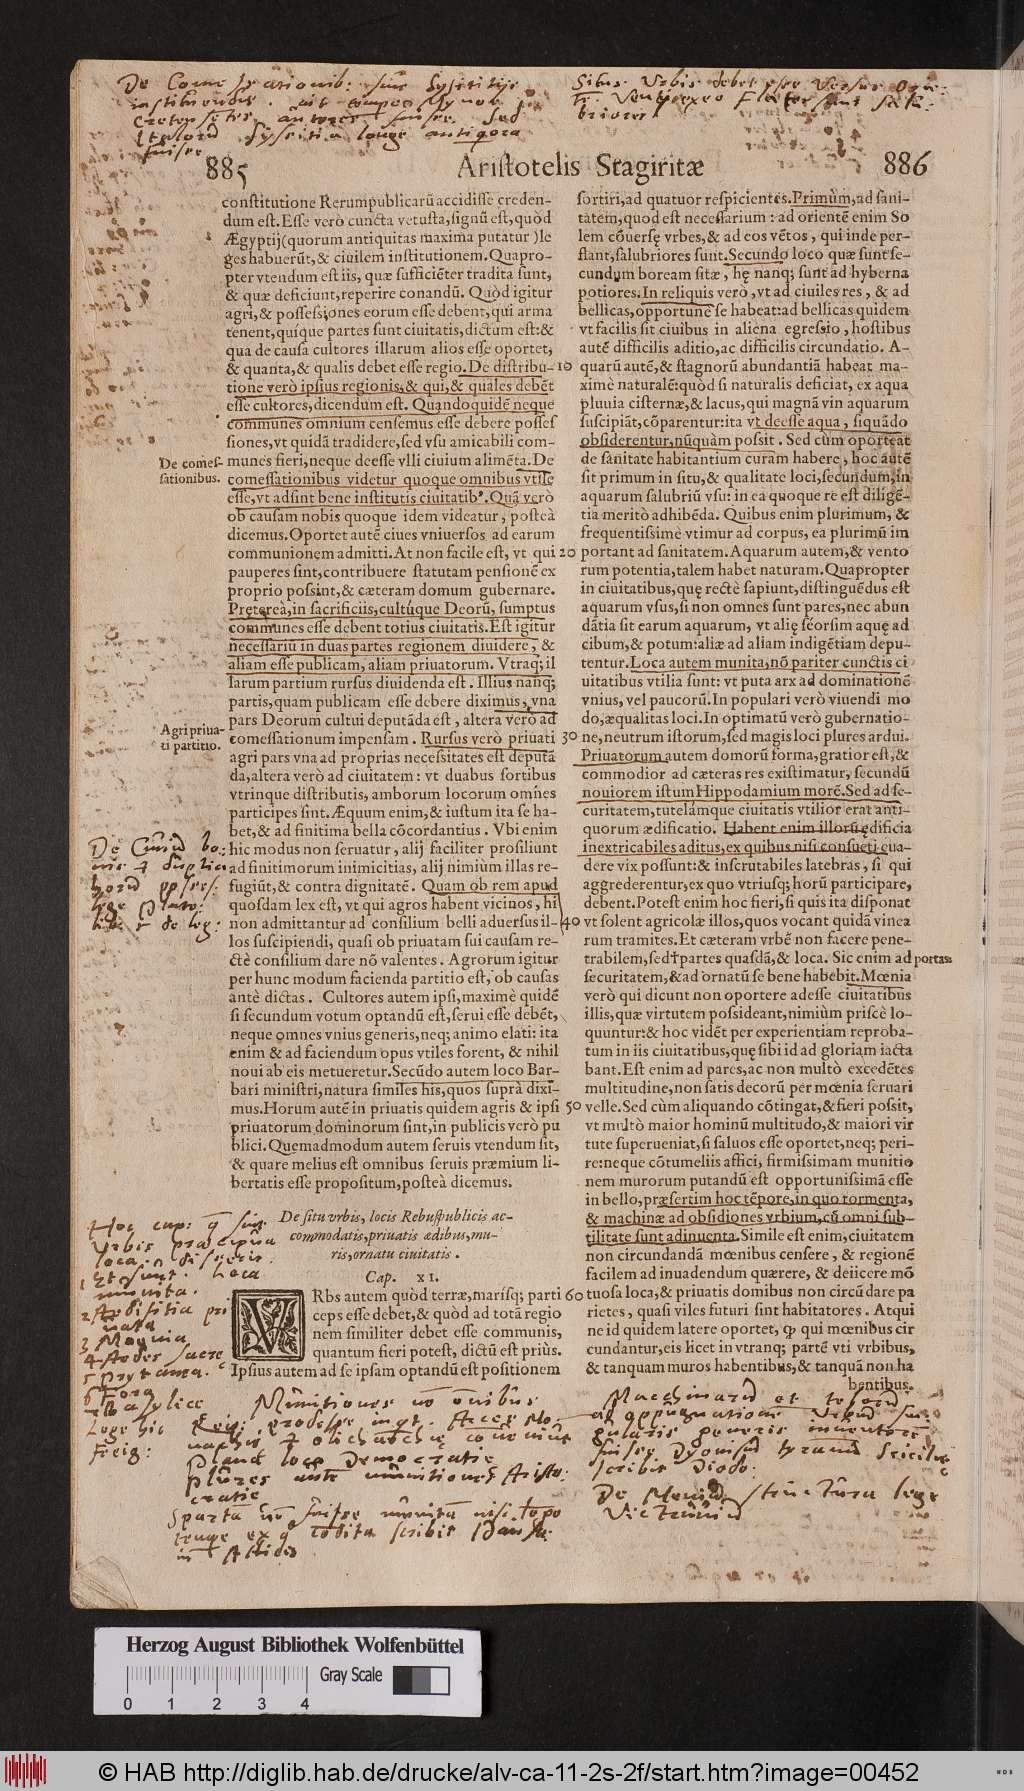 instituendis
885
Aristotelis Stagiritæ
886
constitutione Rerumpublicarū accidisse creden-
dum est. Esse verò cuncta vetusta, signū est, quòd
Ægyptij (quorum antiquitas maxima putatur) le
ges habuerūt, & ciuilem institutionem. Quapro-
pter vtendum est iis, quæ sufficiēter tradita sunt,
& quæ deficiunt, reperire conandū. Quòd igitur
agri, & possessiones eorum esse debent, qui arma
tenent, quíque partes sunt ciuitatis, dictum est: &
qua de causa cultores illarum alios esse oportet,
& quanta, & qualis debet esse regio. De distribu-
tione verò ipsius regionis, & qui, & quales debēt
esse cultores, dicendum est. Quandoquidē neque
communes omnium censemus esse debere posses
siones, vt quidā tradidere, sed vsu amicabili com-
munes fieri, neque deesse vlli ciuium alimēta. De
comessationibus videtur quoque omnibus vtile
esse, vt adsint bene institutis ciuitatib⁹. Quā verò
ob causam nobis quoque idem videatur, posteà
dicemus. Oportet autē ciues vniuersos ad earum
communionem admitti. At non facile est, vt qui
pauperes sint, contribuere statutam pensionē ex
proprio possint, & cæteram domum gubernare.
Pręterea, in sacrificiis, cultúque Deorū, sumptus
communes esse debent totius ciuitatis. Est igitur
necessariū in duas partes regionem diuidere, &
aliam esse publicam, aliam priuatorum. Vtraq; il
larum partium rursus diuidenda est. Illius nanq;
partis, quam publicam esse debere diximus, vna
pars Deorum cultui deputāda est, altera verò ad
comessationum impensam. Rursus verò priuati
agri pars vna ad proprias necessitates est deputā
da, altera verò ad ciuitatem: vt duabus sortibus
vtrinque distributis, amborum locorum omnes
participes sint. Æquum enim, & iustum ita se ha-
bet, & ad finitima bella cōcordantius. Vbi enim
hic modus non seruatur, alij faciliter prosiliunt
ad finitimorum inimicitias, alij nimiùm illas re-
fugiūt, & contra dignitatē. Quam ob rem apud
quosdam lex est, vt qui agros habent vicinos, hi
non admittantur ad consilium belli aduersus il-
los suscipiendi, quasi ob priuatam sui causam re-
ctè consilium dare nō valentes. Agrorum igitur
per hunc modum facienda partitio est, ob causas
antè dictas. Cultores autem ipsi, maximè quidē
si secundum votum optandū est, serui esse debēt,
neque omnes vnius generis, neq; animo elati: ita
enim & ad faciendum opus vtiles forent, & nihil
noui ab eis metueretur. Secūdo autem loco Bar-
bari ministri, natura similes his, quos suprà dixi-
mus. Horum autē in priuatis quidem agris & ipsi
priuatorum dominorum sint, in publicis verò pu
blici. Quemadmodum autem seruis vtendum sit,
& quare melius est omnibus seruis præmium li-
bertatis esse propositum, posteà dicemus.
De comes-
sationibus.
Agri priua-
ti partitio.
De situ vrbis, locis Rebuspublicis ac-
commodatis, priuatis ædibus, mu-
ris, ornatu ciuitatis.
Cap. XI.
VRbs autem quòd terræ, marísq; parti
ceps esse debet, & quòd ad totā regio
nem similiter debet esse communis,
quantum fieri potest, dictū est priùs.
Ipsius autem ad se ipsam optandū est positionem
10
20
30
40
50
60
sortiri, ad quatuor respicientes. Primùm, ad sani-
tatem, quod est necessarium: ad orientē enim So
lem cōuersę vrbes, & ad eos vētos, qui inde per-
flant, salubriores sunt. Secundo loco quæ sunt se-
cundum boream sitæ, hę nanq; sunt ad hyberna
potiores. In reliquis verò, vt ad ciuiles res, & ad
bellicas, opportunè se habeat: ad bellicas quidem
vt facilis sit ciuibus in aliena egressio, hostibus
autē difficilis aditio, ac difficilis circundatio. A-
quarū autē, & stagnorū abundantiā habeat ma-
ximè naturalē: quòd si naturalis deficiat, ex aqua
pluuia cisternæ, & lacus, qui magnā vin aquarum
suscipiāt, cōparentur: ita vt deesse aqua, siquādo
obsiderentur, nūquàm possit. Sed cùm oporteat
de sanitate habitantium curam habere, hoc autē
sit primum in situ, & qualitate loci, secundum, in
aquarum salubriū vsu: in ea quoque re est diligē-
tia meritò adhibēda. Quibus enim plurimum, &
frequentissimè vtimur ad corpus, ea plurimū im
portant ad sanitatem. Aquarum autem, & vento
rum potentia, talem habet naturam. Quapropter
in ciuitatibus, quę rectè sapiunt, distinguēdus est
aquarum vsus, si non omnes sunt pares, nec abun
dātia sit earum aquarum, vt alię séorsim aquę ad
cibum, & potum: aliæ ad aliam indigētiam depu-
tentur. Loca autem munita, nō pariter cunctis ci
uitatibus vtilia sunt: vt puta arx ad dominationē
vnius, vel paucorū. In populari verò viuendi mo
do, æqualitas loci. In optimatū verò gubernatio-
ne, neutrum istorum, sed magis loci plures ardui.
Priuatorum autem domorū forma, gratior est, &
commodior ad cæteras res existimatur, secundū
nouiorem istum Hippodamium morē. Sed ad se-
curitatem, tutelámque ciuitatis vtilior erat anti-
quorum ædificatio. Habent enim illorū ędificia
inextricabiles aditus, ex quibus nisi consueti eua-
dere vix possunt: & inscrutabiles latebras, si qui
aggrederentur, ex quo vtriusq; horū participare,
debent. Potest enim hoc fieri, si quis ita disponat
vt solent agricolæ illos, quos vocant quidā vinea
rum tramites. Et cæteram vrbē non facere pene-
trabilem, sed†partes quasdā, & loca. Sic enim ad
portas
securitatem, & ad ornatū se bene habebit. Mœnia
verò qui dicunt non oportere adesse ciuitatibus
illis, quæ virtutem possideant, nimiùm priscè lo-
quuntur: & hoc vidēt per experientiam reproba-
tum in iis ciuitatibus, quę sibi id ad gloriam iacta
bant. Est enim ad pares, ac non multò excedētes
multitudine, non satis decorū per mœnia seruari
velle. Sed cùm aliquando cōtingat, & fieri possit,
vt multò maior hominū multitudo, & maiori vir
tute superueniat, si saluos esse oportet, neq; peri-
re: neque cōtumeliis affici, firmissimam munitio
nem murorum putandū est opportunissimā esse
in bello, præsertim hoc tēpore, in quo tormenta,
& machinæ ad obsidiones vrbium, cū omni sub-
tilitate sunt adinuenta. Simile est enim, ciuitatem
non circundandā mœnibus censere, & regionē
facilem ad inuadendum quærere, & deiicere mō
tuosa loca, & priuatis domibus non circūdare pa
rietes, quasi viles futuri sint habitatores. Atqui
ne id quidem latere oportet, ꝙ qui mœnibus cir
cundantur, eis licet in vtranq; partē vti vrbibus,
& tanquam muros habentibus, & tanquā non ha
bentibus.
Herzog August Bibliothek Wolfenbüttel
Gray Scale
0 1 2 3 4
© HAB http://diglib.hab.de/drucke/alv-ca-11-2s-2f/start.htm?image=00452